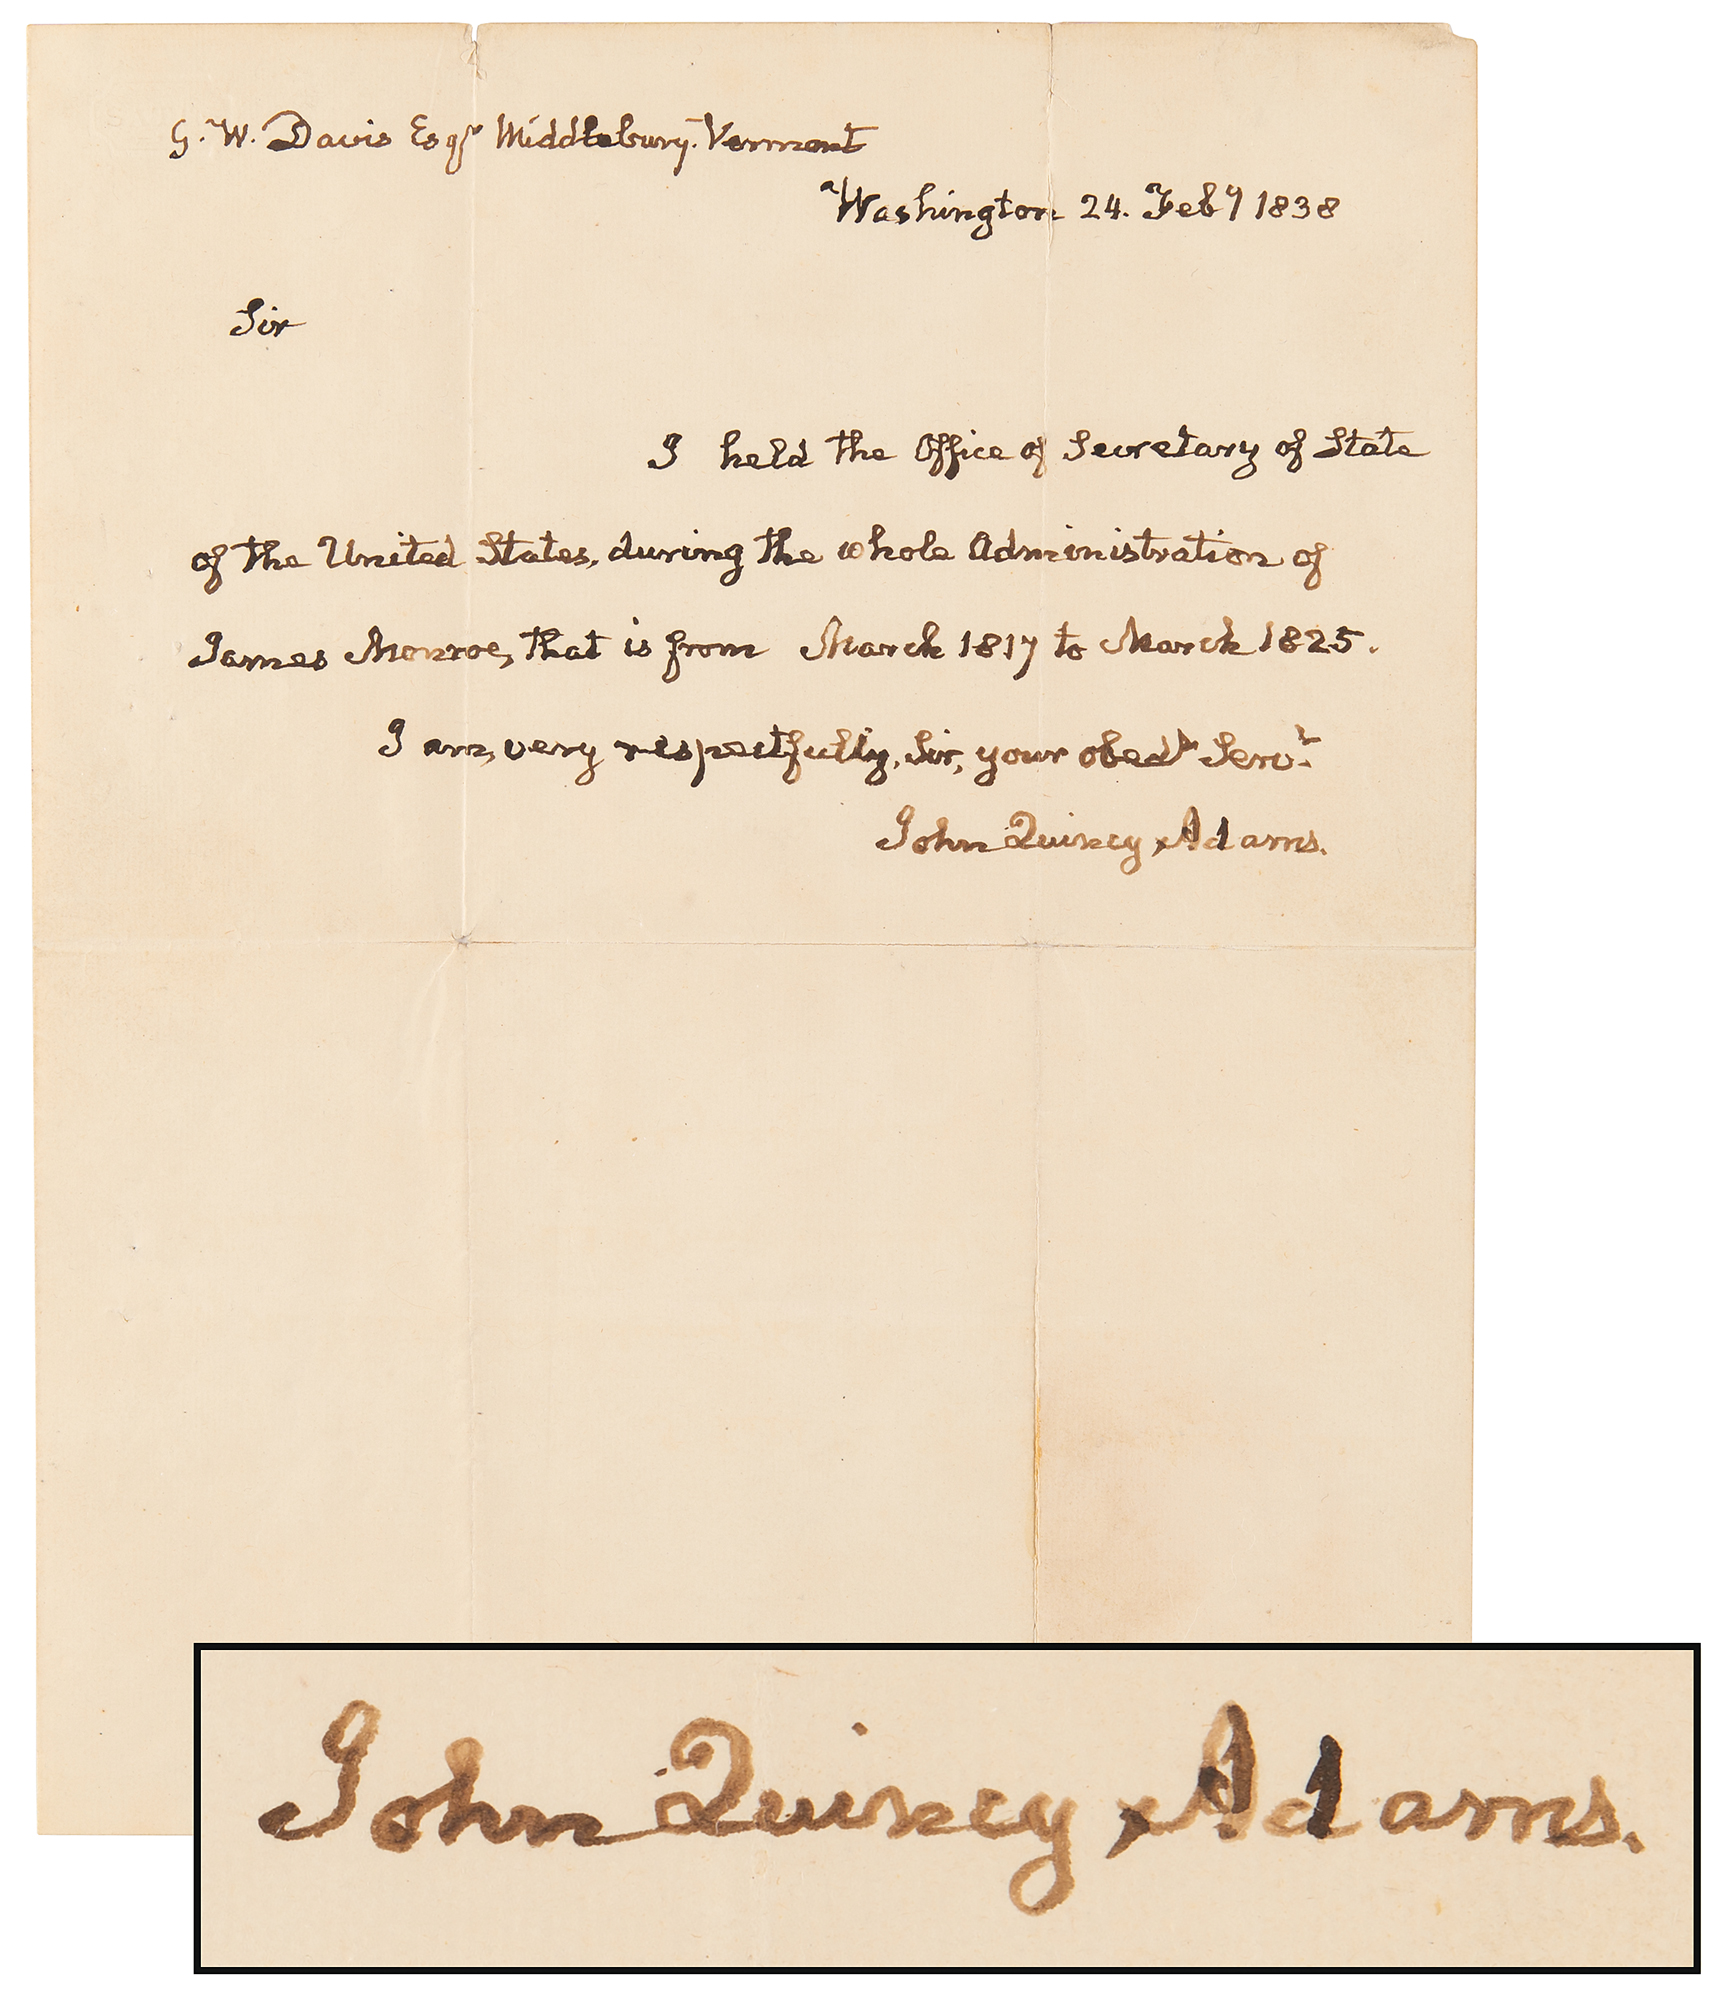 G. W. Davis Esqr. Middlebury. Vermont
Washington 24. Feby 1838
Sir
I held the Office of Secretary of State
of the United States, during the whole Administration of
James Monroe, that is from March 1817 to March 1825.
I am, very respectfully, Sir, your obedt. Servt.
John Quincy Adams.
John Quincy Adams.